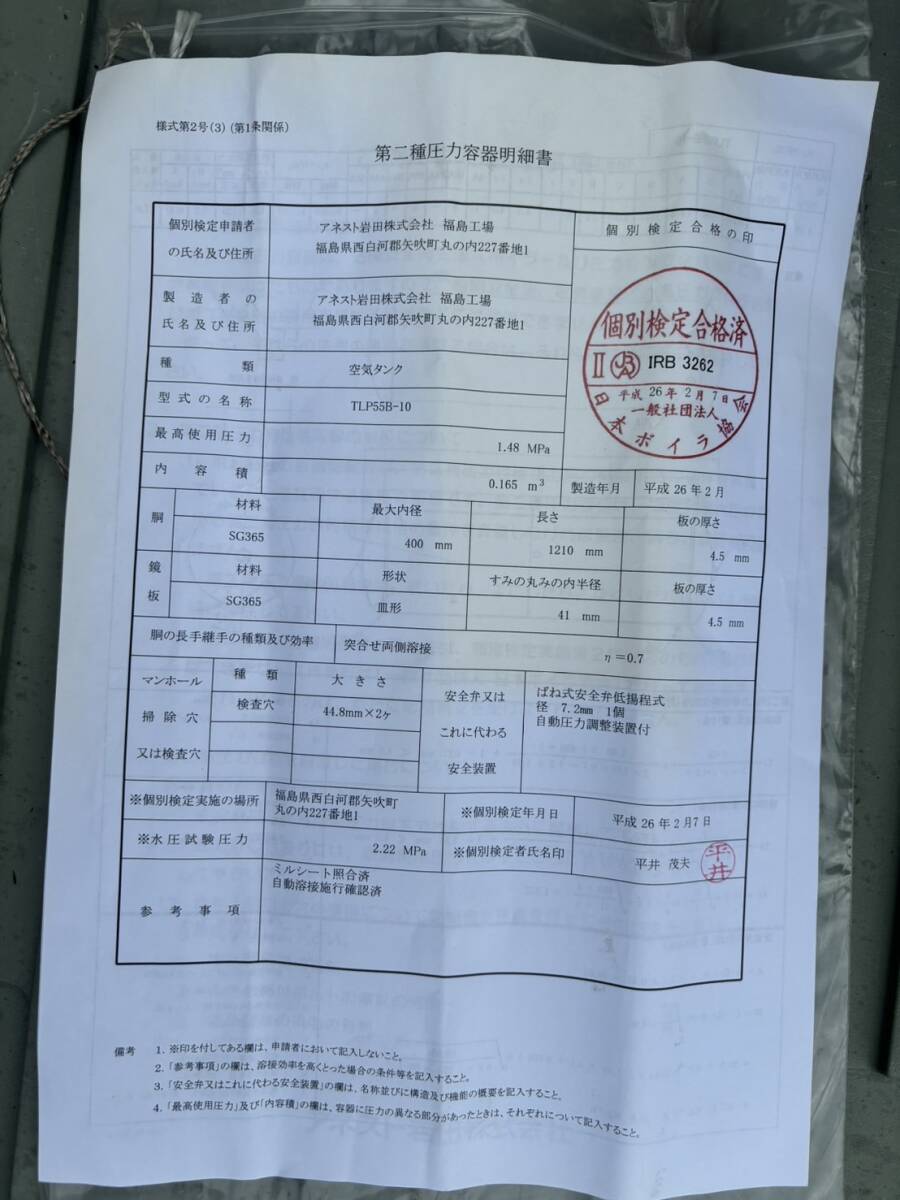 様式第2号(3)(第1条関係)
第二種圧力容器明細書
個別検定申請者
の氏名及び住所
アネスト岩田株式会社 福島工場
福島県西白河郡矢吹町丸の内227番地1
個別検定合格の印
製造者の
氏名及び住所
アネスト岩田株式会社 福島工場
福島県西白河郡矢吹町丸の内227番地1
個別検定合格済
II IRB 3262
平成 26年 2月 7日
一般社団法人
日本ボイラ協会
種類
空気タンク
型式の名称
TLP55B-10
最高使用圧力
1.48 MPa
内容積
0.165 m³
製造年月
平成 26年 2月
胴
材料
最大内径
長さ
板の厚さ
SG365
400 mm
1210 mm
4.5 mm
鏡板
材料
形状
すみの丸みの内半径
板の厚さ
SG365
皿形
41 mm
4.5 mm
胴の長手継手の種類及び効率
突合せ両側溶接
η=0.7
マンホール
掃除穴
又は検査穴
種類
大きさ
検査穴
44.8mm×2ヶ
安全弁又は
これに代わる
安全装置
ばね式安全弁低揚程式
径 7.2mm 1個
自動圧力調整装置付
※個別検定実施の場所
福島県西白河郡矢吹町
丸の内227番地1
※個別検定年月日
平成 26年 2月 7日
※水圧試験圧力
2.22 MPa
※個別検定者氏名印
平井 茂夫
平井
参考事項
ミルシート照合済
自動溶接施行確認済
備考 1. ※印を付してある欄は、申請者において記入しないこと。
2. 「参考事項」の欄は、溶接効率を高くとった場合の条件等を記入すること。
3. 「安全弁又はこれに代わる安全装置」の欄は、名称並びに構造及び機能の概要を記入すること。
4. 「最高使用圧力」及び「内容積」の欄は、容器に圧力の異なる部分があったときは、それぞれについて記入すること。